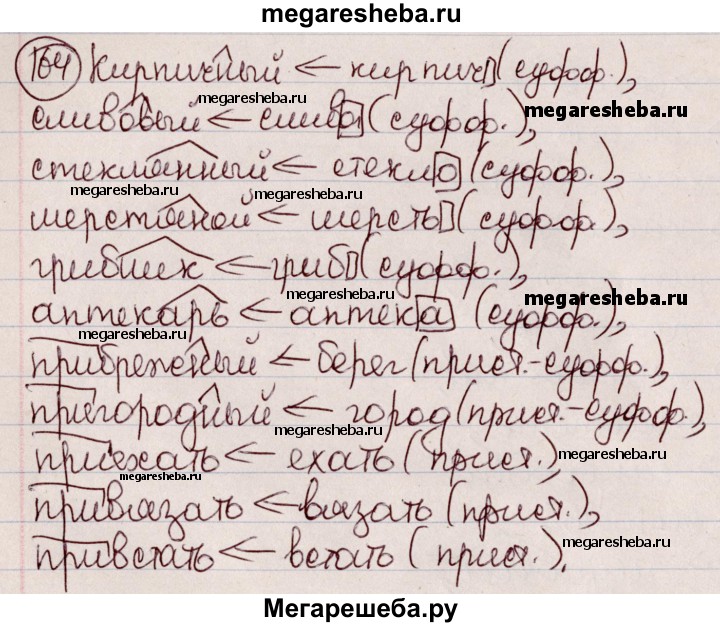 megaresheba.ru
164 Кирпичный ← кирпич (суфф.),
megaresheba.ru
megaresheba.ru
сливовый ← слива (суфф.),
стеклянный ← стекло (суфф.),
megaresheba.ru
megaresheba.ru
шерстяной ← шерсть (суфф.),
грибник ← гриб (суфф.),
megaresheba.ru
megaresheba.ru
аптекарь ← аптека (суфф.),
megaresheba.ru
прибрежный ← берег (прист.-суфф.),
пригородный ← город (прист.-суфф.),
megaresheba.ru
приехать ← ехать (прист.),
megaresheba.ru
megaresheba.ru
привязать ← вязать (прист.),
привстать ← встать (прист.).
megaresheba.ru
Мегарешеба.ру